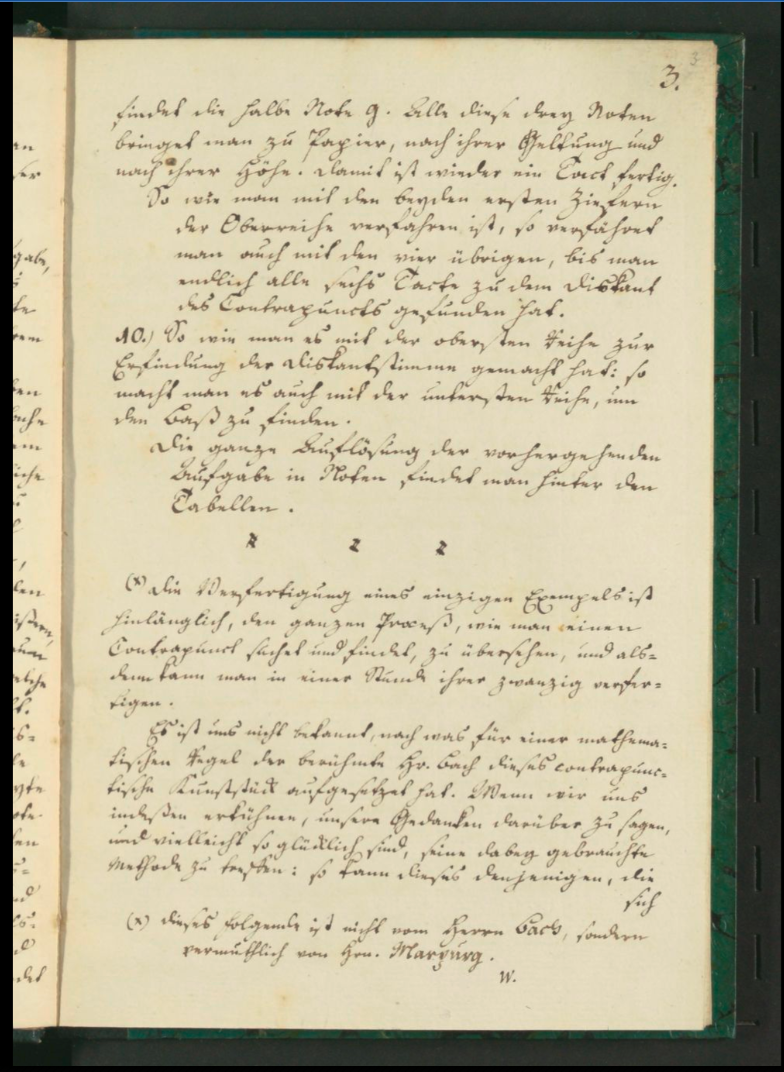 3
3.
findet die halbe Note g. Alle diese drey Noten
bringet man zu Papier, nach ihrer Geltung und
nach ihrer Höhe. Damit ist wieder ein Tact fertig.
So wie man mit den beyden ersten Ziefern
der Oberreihe verfahren ist, so verfähret
man auch mit den vier übrigen, bis man
endlich alle sechs Tacte zu dem Diskant
des Contrapuncts gefunden hat.
10.) So wie man es mit der obersten Reihe zur
Erfindung der Diskantstimme gemacht hat: so
macht man es auch mit der untersten Reihe, um
den Baß zu finden.
Die ganze Auflösung der vorhergehenden
Aufgabe in Noten findet man hinter den
Tabellen.
(x) Die Verfertigung eines einzigen Exempels ist
hinlänglich, den ganzen Proceß, wie man einen
Contrapunct suchet und findet, zu übersehen, und als-
denn kann man in einer Stunde ihrer zwanzig verfer-
tigen.
Es ist uns nicht bekannt, nach was für einer mathema-
tischen Regel der berühmte Hr. Bach dieses contrapunc-
tische Kunststück aufgesetzet hat. Wenn wir uns
indeßen erkühnen, unsere Gedanken darüber zu sagen,
und vielleicht so glücklich sind, seine dabey gebrauchte
Methode zu treffen: so kann dieses denjenigen, die
sich
(x) dieses folgende ist nicht vom Herrn Bach, sondern
vermuthlich von Hrn. Marpurg.
W.